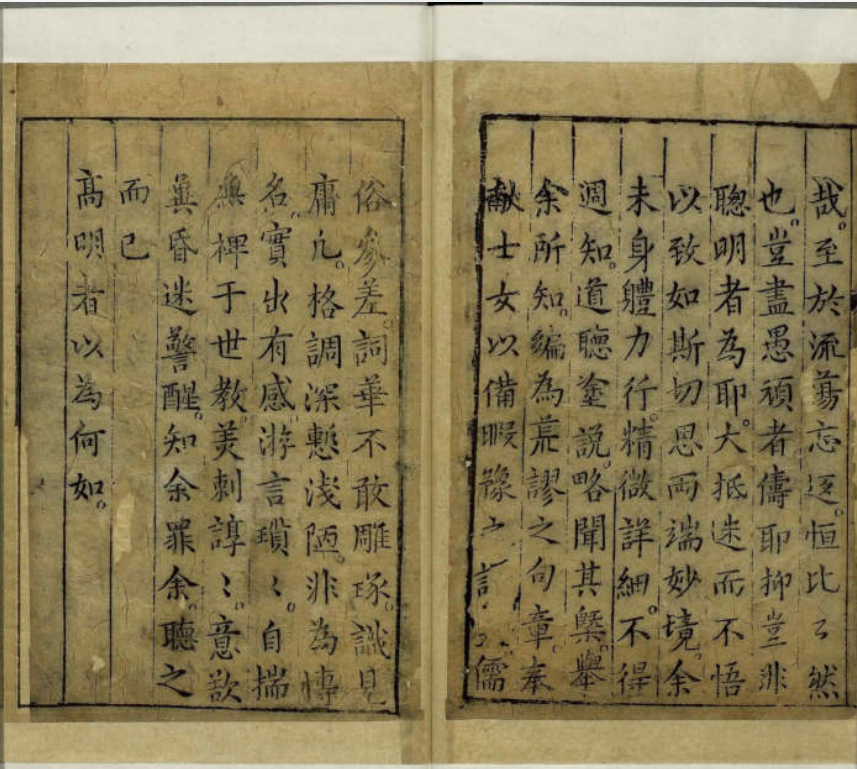 哉。至於流蕩忘返。恒比比然
也。豈盡愚頑者儔耶抑豈非
聰明者為耶。大抵迷而不悟
以致如斯切思兩端妙境。余
未身軆力行。精微詳細。不得
週知。道聽塗說。略聞其槩。舉
余所知。編為荒謬之句章。奉
献士女以備暇豫之言。儒
俗參差。詞華不敢雕琢。識見
庸凡。格調深慙淺陋。非為博
名。實出有感。游言瑣〻。自揣
無裨于世教。美刺諄〻。意欲
冀昏迷警醒。知余罪余。聽之
而已
高明者以為何如。